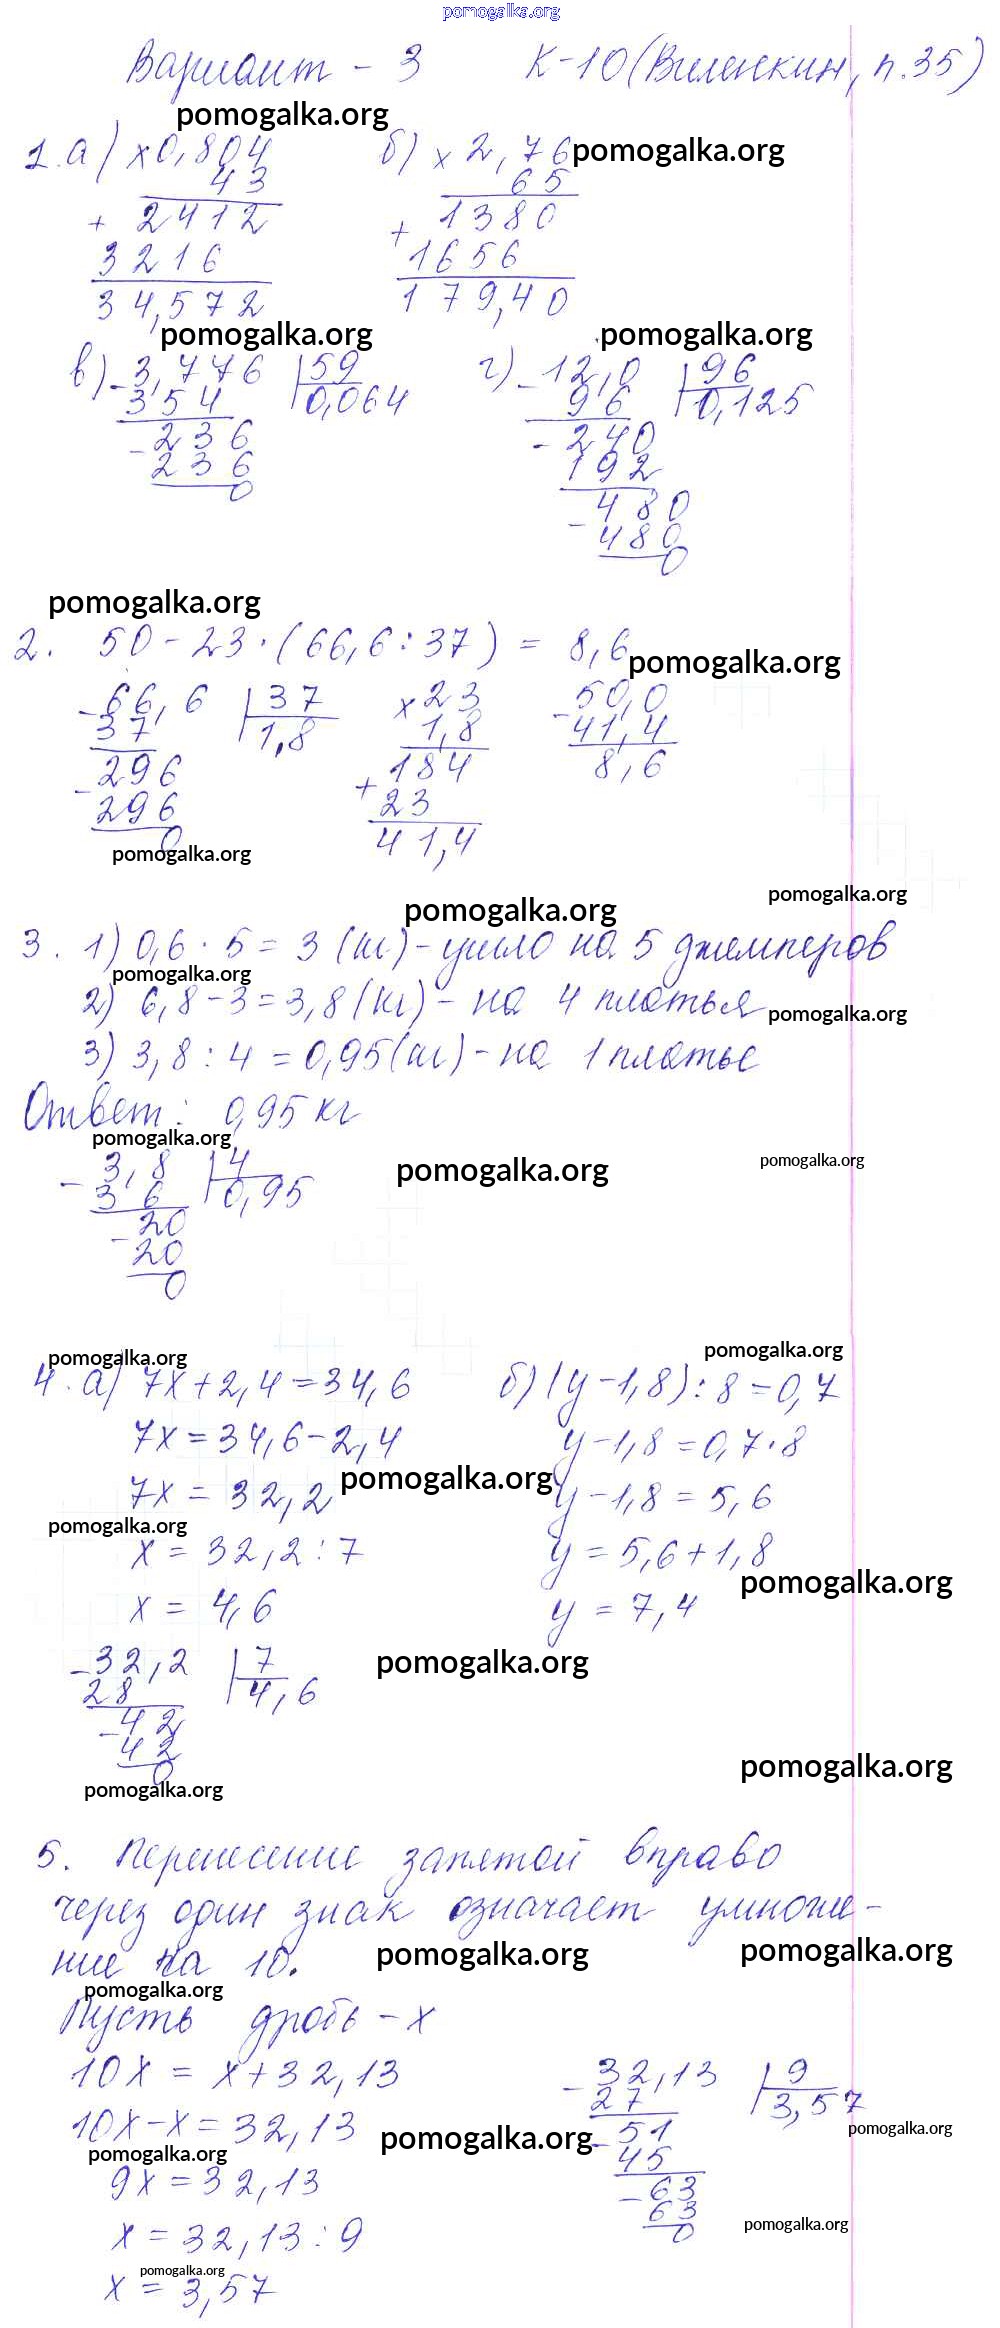 pomogalka.org
Вариант - 3 К-10 (Виленкин, п.35)
pomogalka.org
1. а) × 0,804 б) × 2,76 pomogalka.org
43 65
+ 2412 + 1380
3216 1656
34,572 179,40
pomogalka.org pomogalka.org
в) - 3,776 59 г) - 12,0 96
354 0,064 96 0,125
- 236 - 240
236 192
0 - 480
480
0
pomogalka.org
2. 50 - 23 · (66,6 : 37) = 8,6
pomogalka.org
- 66,6 37 × 23 - 50,0
37 1,8 1,8 41,4
- 296 + 184 8,6
296 23
0 41,4
pomogalka.org
pomogalka.org
pomogalka.org
3. 1) 0,6 · 5 = 3 (кг) - ушло на 5 джемперов
pomogalka.org
2) 6,8 - 3 = 3,8 (кг) - на 4 платья
pomogalka.org
3) 3,8 : 4 = 0,95 (кг) - на 1 платье
Ответ: 0,95 кг
pomogalka.org
pomogalka.org pomogalka.org
- 3,8 4
3 6 0,95
- 20
20
0
pomogalka.org pomogalka.org
4. а) 7x + 2,4 = 34,6 б) (y - 1,8) : 8 = 0,7
7x = 34,6 - 2,4 y - 1,8 = 0,7 · 8
pomogalka.org
7x = 32,2 y - 1,8 = 5,6
pomogalka.org
x = 32,2 : 7 y = 5,6 + 1,8
pomogalka.org
x = 4,6 y = 7,4
pomogalka.org
- 32,2 7
28 4,6
- 42
42
0
pomogalka.org
pomogalka.org
5. Перенесение запятой вправо
через один знак означает умноже-
ние на 10.
pomogalka.org pomogalka.org
pomogalka.org
Пусть дробь - x
10x = x + 32,13 - 32,13 9
10x - x = 32,13 27 3,57
pomogalka.org pomogalka.org pomogalka.org
9x = 32,13 - 51
45
x = 32,13 : 9 - 63
63
0
pomogalka.org
pomogalka.org
x = 3,57